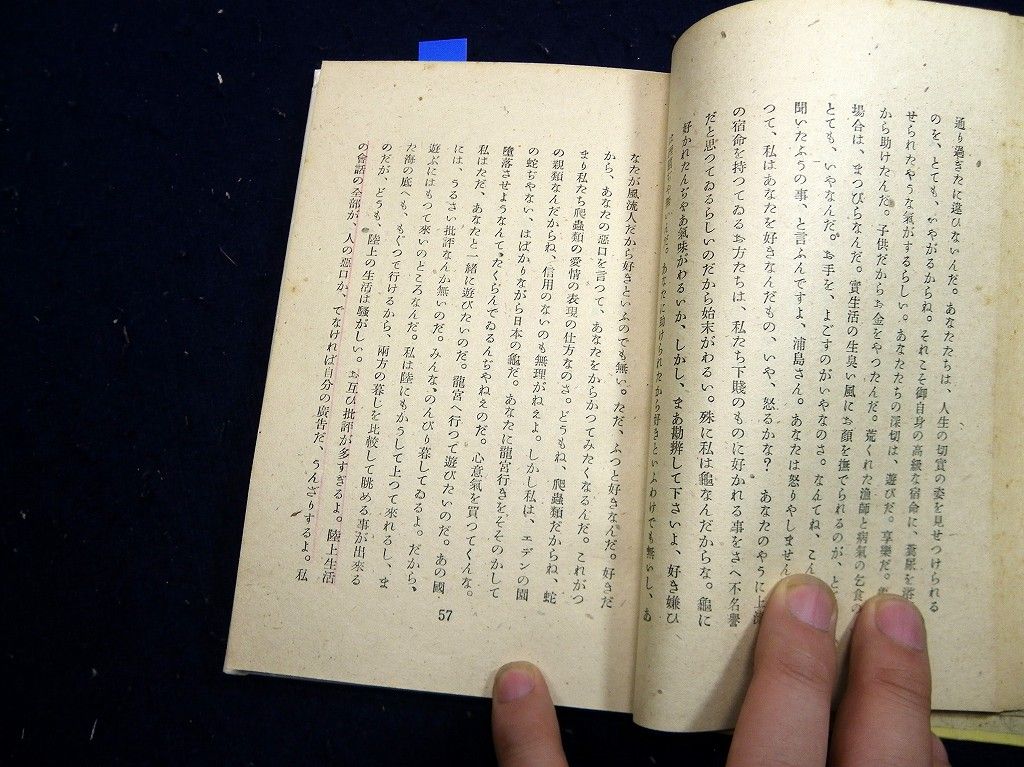 通り過ぎたに違ひないんだ。あなたたちは、人生の切實の姿を見せつけられる
のを、とても、いやがるからね。それこそ御自身の高級な宿命に、糞尿を浴
せられたやうな氣がするらしい。あなたたちの深切は、遊びだ。享樂だ。
から助けたんだ。子供だからお金をやつたんだ。荒くれた漁師と病氣の乞食の
場合は、まつぴらなんだ。實生活の生臭い風にお顔を撫でられるのが、と
とても、いやなんだ。お手を、よごすのがいやなのさ。なんてね、こん
聞いたふうの事、と言ふんですよ、浦島さん。あなたは怒りやしません
つて、私はあなたを好きなんだもの、いや、怒るかな？あなたのやうに上流
の宿命を持つてゐるお方たちは、私たち下賤のものに好かれる事をさへ不名譽
だと思つてゐるらしいのだから始末がわるい。殊に私は龜なんだからな。龜に
好かれたんぢやあ氣味がわるいか、しかし、まあ勘辨して下さいよ、好き嫌ひ
あなたに助けられたから好きといふわけでも無いし、あ
なたが風流人だから好きといふのでも無い。ただ、ふつと好きなんだ。好きだ
から、あなたの惡口を言つて、あなたをからかつてみたくなるんだ。これがつ
まり私たち爬蟲類の愛情の表現の仕方なのさ。どうもね、爬蟲類だからね、蛇
の親類なんだからね、信用のないのも無理がねえよ。しかし私は、エデンの園
の蛇ぢやない、はばかりながら日本の龜だ。あなたに龍宮行きをそそのかして
墮落させようなんて、たくらんでゐるんぢやねえのだ。心意氣を買つてくんな。
私はただ、あなたと一緒に遊びたいのだ。龍宮へ行つて遊びたいのだ。あの國
には、うるさい批評なんか無いのだ。みんな、のんびり暮してゐるよ。だから、
遊ぶにはもつて來いのところなんだ。私は陸にもかうして上つて來れるし、ま
た海の底へも、もぐつて行けるから、兩方の暮しを比較して眺める事が出來る
のだが、どうも、陸上の生活は騒がしい。お互ひ批評が多すぎるよ。陸上生活
の會話の全部が、人の惡口か、でなければ自分の廣告だ。うんざりするよ。私
57